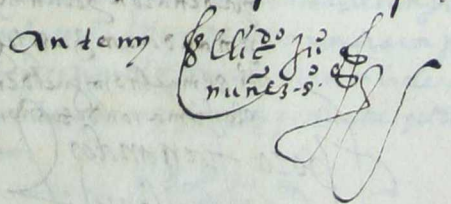 Antemy El liçdo Juº
nuñez sº